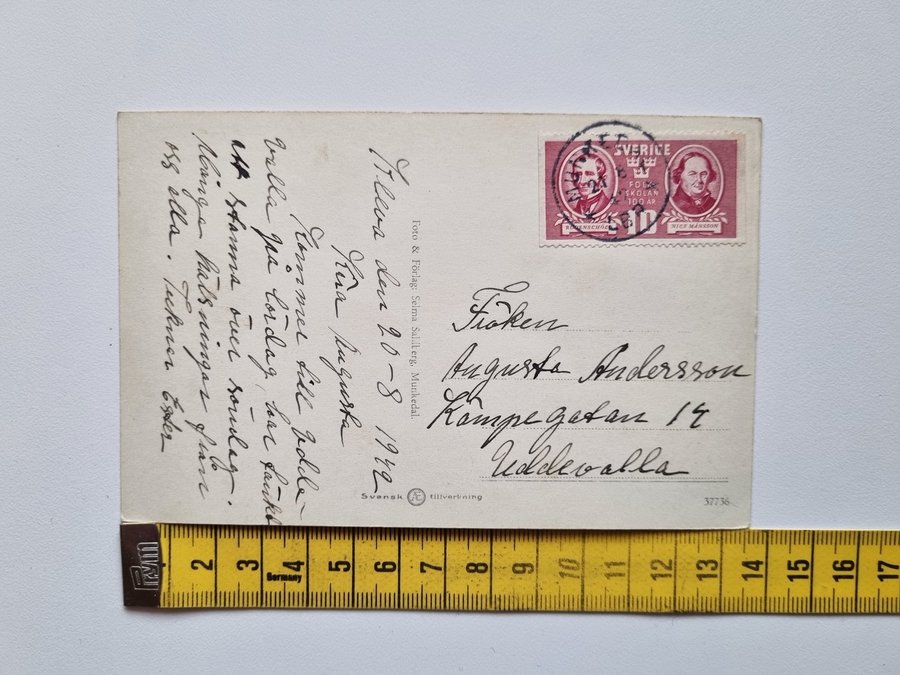 den 20-8 1942
Kära Augusta
Kommer till Udde-
valla på lördag, har tänkt
att stanna över söndag.
Många hälsningar från
oss alla. Tecknar Ester
Foto & Förlag: Selma Sahlberg, Munkedal.
SVERIGE
FOLK
SKOLAN
100 ÅR
RUDENSCHÖLD
10
NILS MÅNSSON
MUNKEDAL
21 8
Fröken
Augusta Andersson
Kämpegatan 14
Uddevalla
Svensk tillverkning
37736
Germany
2 3 4 5 6 7 8 9 10 11 12 13 14 15 16 17